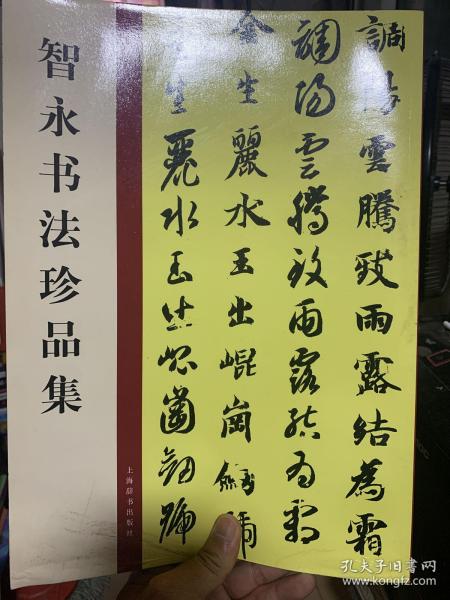 智永书法珍品集
上海辞书出版社
調陽雲騰致雨露結為霜
調陽雲騰致雨露結為霜
金生麗水玉出崐崗劔號
金生麗水玉出崐崗劔號
孔夫子旧书网
www.kongfz.com